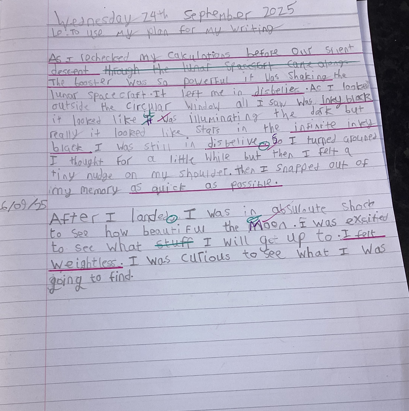 Wednesday 24th September 2025
Lo to use my plan for my writing
As I rechecked my calculations before our silent
descent through the lunar spacecraft came along.
The booster was so powerful it was shaking the
lunar spacecraft. It left me in disbelief. As I looked
outside the circular window all I saw was inky black
it looked like it was illuminating the dark but
really it looked like stars in the infinite inky
black I was still in disbelive. So I turned around
I thought for a little while but then I felt a
tiny nudge on my shoulder. then I snapped out of
my memory as quick as possible.
After I landed I was in absuloute shock
to see how beautiful the Moon. I was excited
to see what stuff I will get up to. I felt
weightless. I was curious to see what I was
going to find.